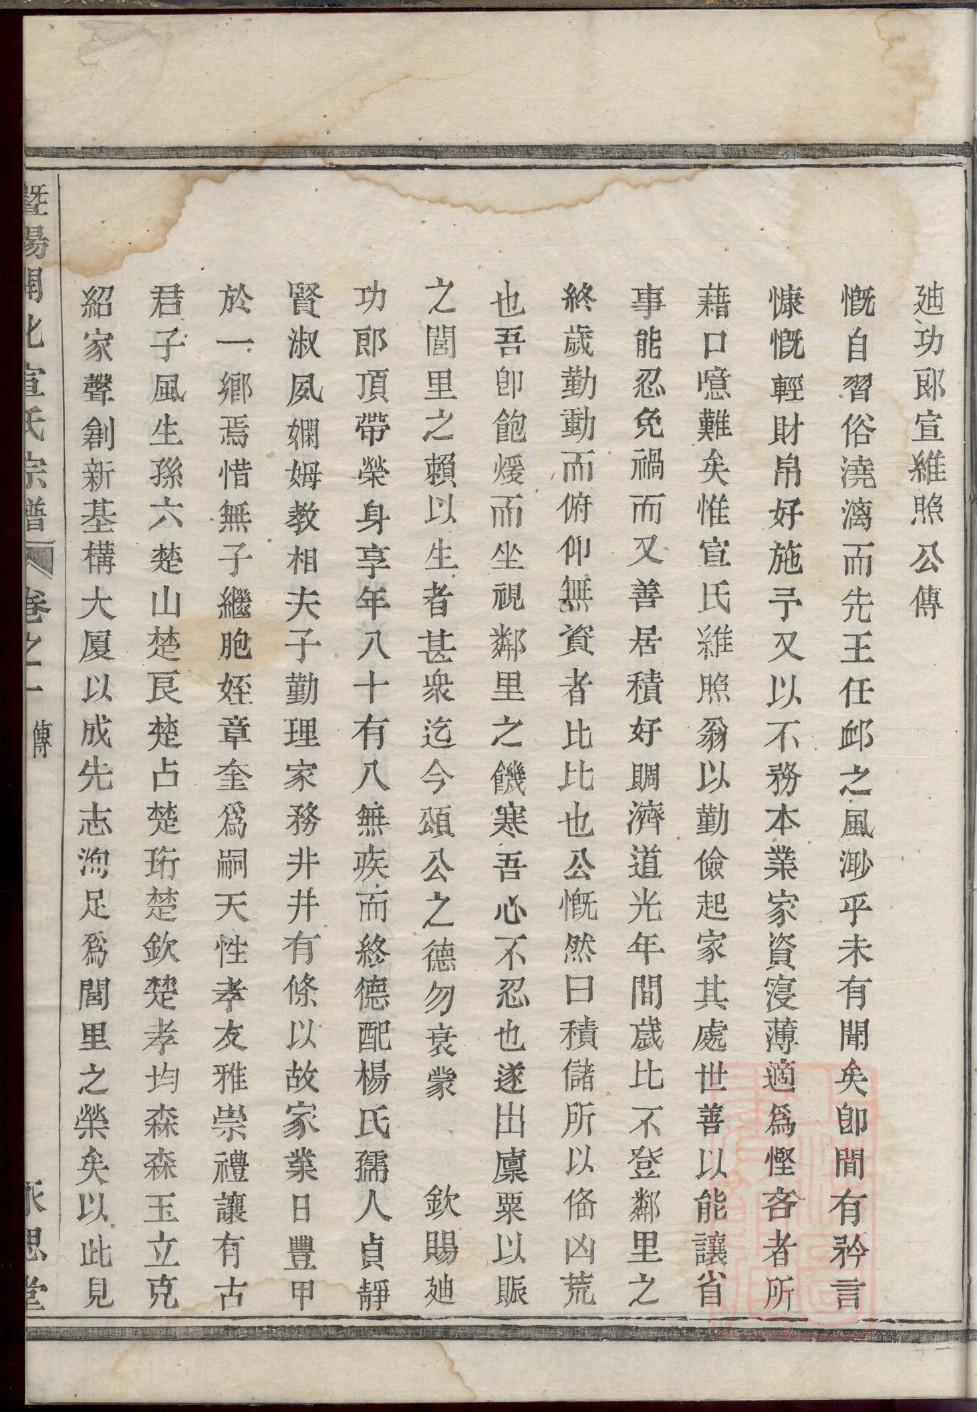 廸功郎宣維照公傳
慨自習俗澆漓而先王任卹之風渺乎未有聞矣卽間有矜言
慷慨輕財帛好施予又以不務本業家資寖薄適爲慳吝者所
藉口噫難矣惟宣氏維照翁以勤儉起家其處世善以能讓省
事能忍免禍而又善居積好賙濟道光年間歲比不登鄰里之
終歲勤動而俯仰無資者比比也公慨然曰積儲所以偹凶荒
也吾卽飽煖而坐視鄰里之饑寒吾心不忍也遂出廪粟以賑
之閭里之賴以生者甚衆迄今頌公之德勿衰蒙　欽賜廸
功郎頂帶榮身享年八十有八無疾而終德配楊氏孺人貞靜
賢淑夙嫻姆教相夫子勤理家務井井有條以故家業日豐甲
於一鄉焉惜無子繼胞姪章奎爲嗣天性孝友雅崇禮讓有古
君子風生孫六楚山楚良楚占楚珩楚欽楚孝均森森玉立克
紹家聲創新基構大厦以成先志洵足爲閭里之榮矣以此見
暨陽開化宣氏宗譜　卷之一　傳　永思堂